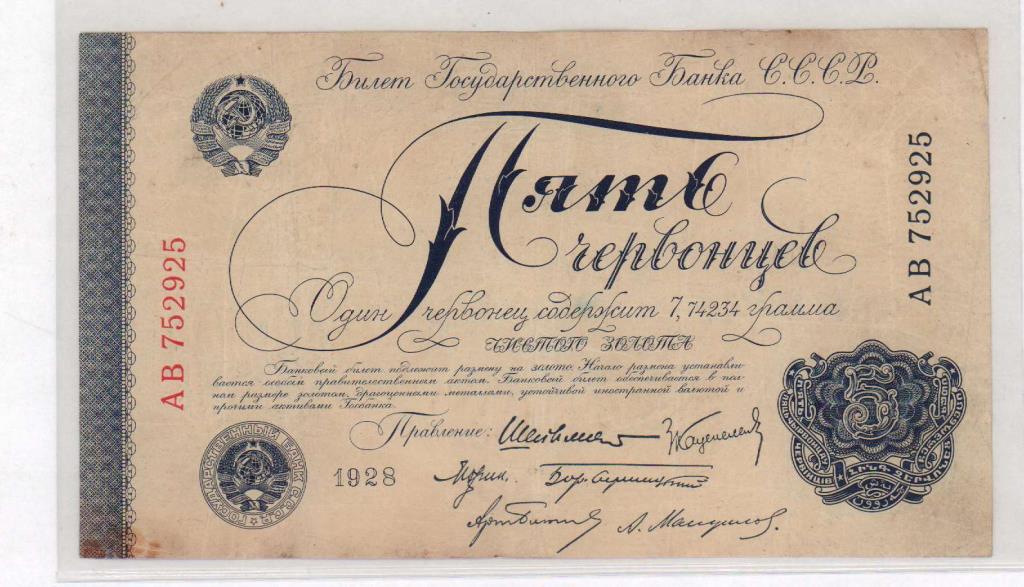 Билет Государственного Банка С.С.С.Р.
Пять
червонцев
Один червонец содержит 7,74234 грамма
чистого золота
Банковый билет подлежит размену на золото. Начало размена устанавли-
вается особым правительственным актом. Банковый билет обеспечивается в пол-
ном размере золотом, драгоценными металлами, устойчивой иностранной валютой и
прочими активами Госбанка.
Правление:
1928
АВ 752925
АВ 752925
ГОСУДАРСТВЕННЫЙ БАНК С.С.С.Р.
5